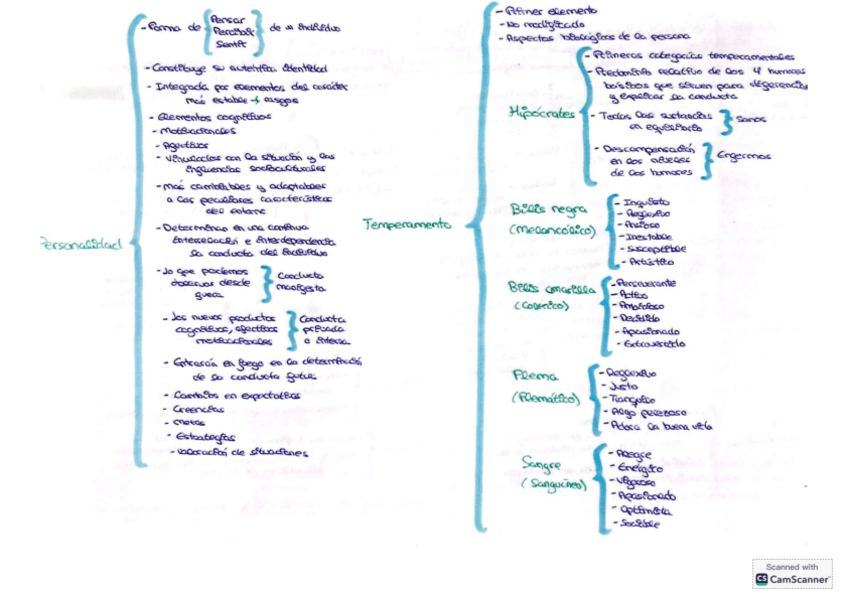 Personalidad
- Forma de
Pensar
Percibir
Sentir
de un individuo
- Constituye su auténtica identidad
- Integrada por elementos del carácter
más estable → rasgos
- Elementos cognitivos
- Motivacionales
- Afectivos
- Vinculados con la situación y las
influencias socioculturales
- Más cambiables y adaptables
a las peculiares características
del entorno
- Determinan en una continua
interrelación e interdependencia
la conducta del individuo
- Lo que podemos
observar desde
fuera
Conducta
manifiesta
- Los nuevos productos
cognitivos, afectivos
motivacionales
Conducta
privada
o interna
- Entrarán en juego en la determinación
de la conducta futura
- Cambios en expectativas
- Creencias
- Metas
- Estrategias
- Valoración de situaciones
Temperamento
- Primer elemento
- No modificado
- Aspectos biológicos de la persona
Hipócrates
- Primeras categorías temperamentales
- Predominio relativo de los 4 humores
básicos que sirven para diferenciar
y explicar la conducta
- Todas las sustancias
en equilibrio
Sanos
- Descompensación
en los niveles
de los humores
Enfermos
Bilis negra
(Melancólico)
- Inquieto
- Reflexivo
- Ansioso
- Inestable
- Susceptible
- Artístico
Bilis amarilla
(Colérico)
- Perseverante
- Activo
- Ambicioso
- Decidido
- Apasionado
- Extrovertido
Flema
(Flemático)
- Reflexivo
- Justo
- Tranquilo
- Algo perezoso
- Adora la buena vida
Sangre
(Sanguíneo)
- Alegre
- Enérgico
- Vigoroso
- Apasionado
- Optimista
- Sociable
Scanned with
CS CamScanner